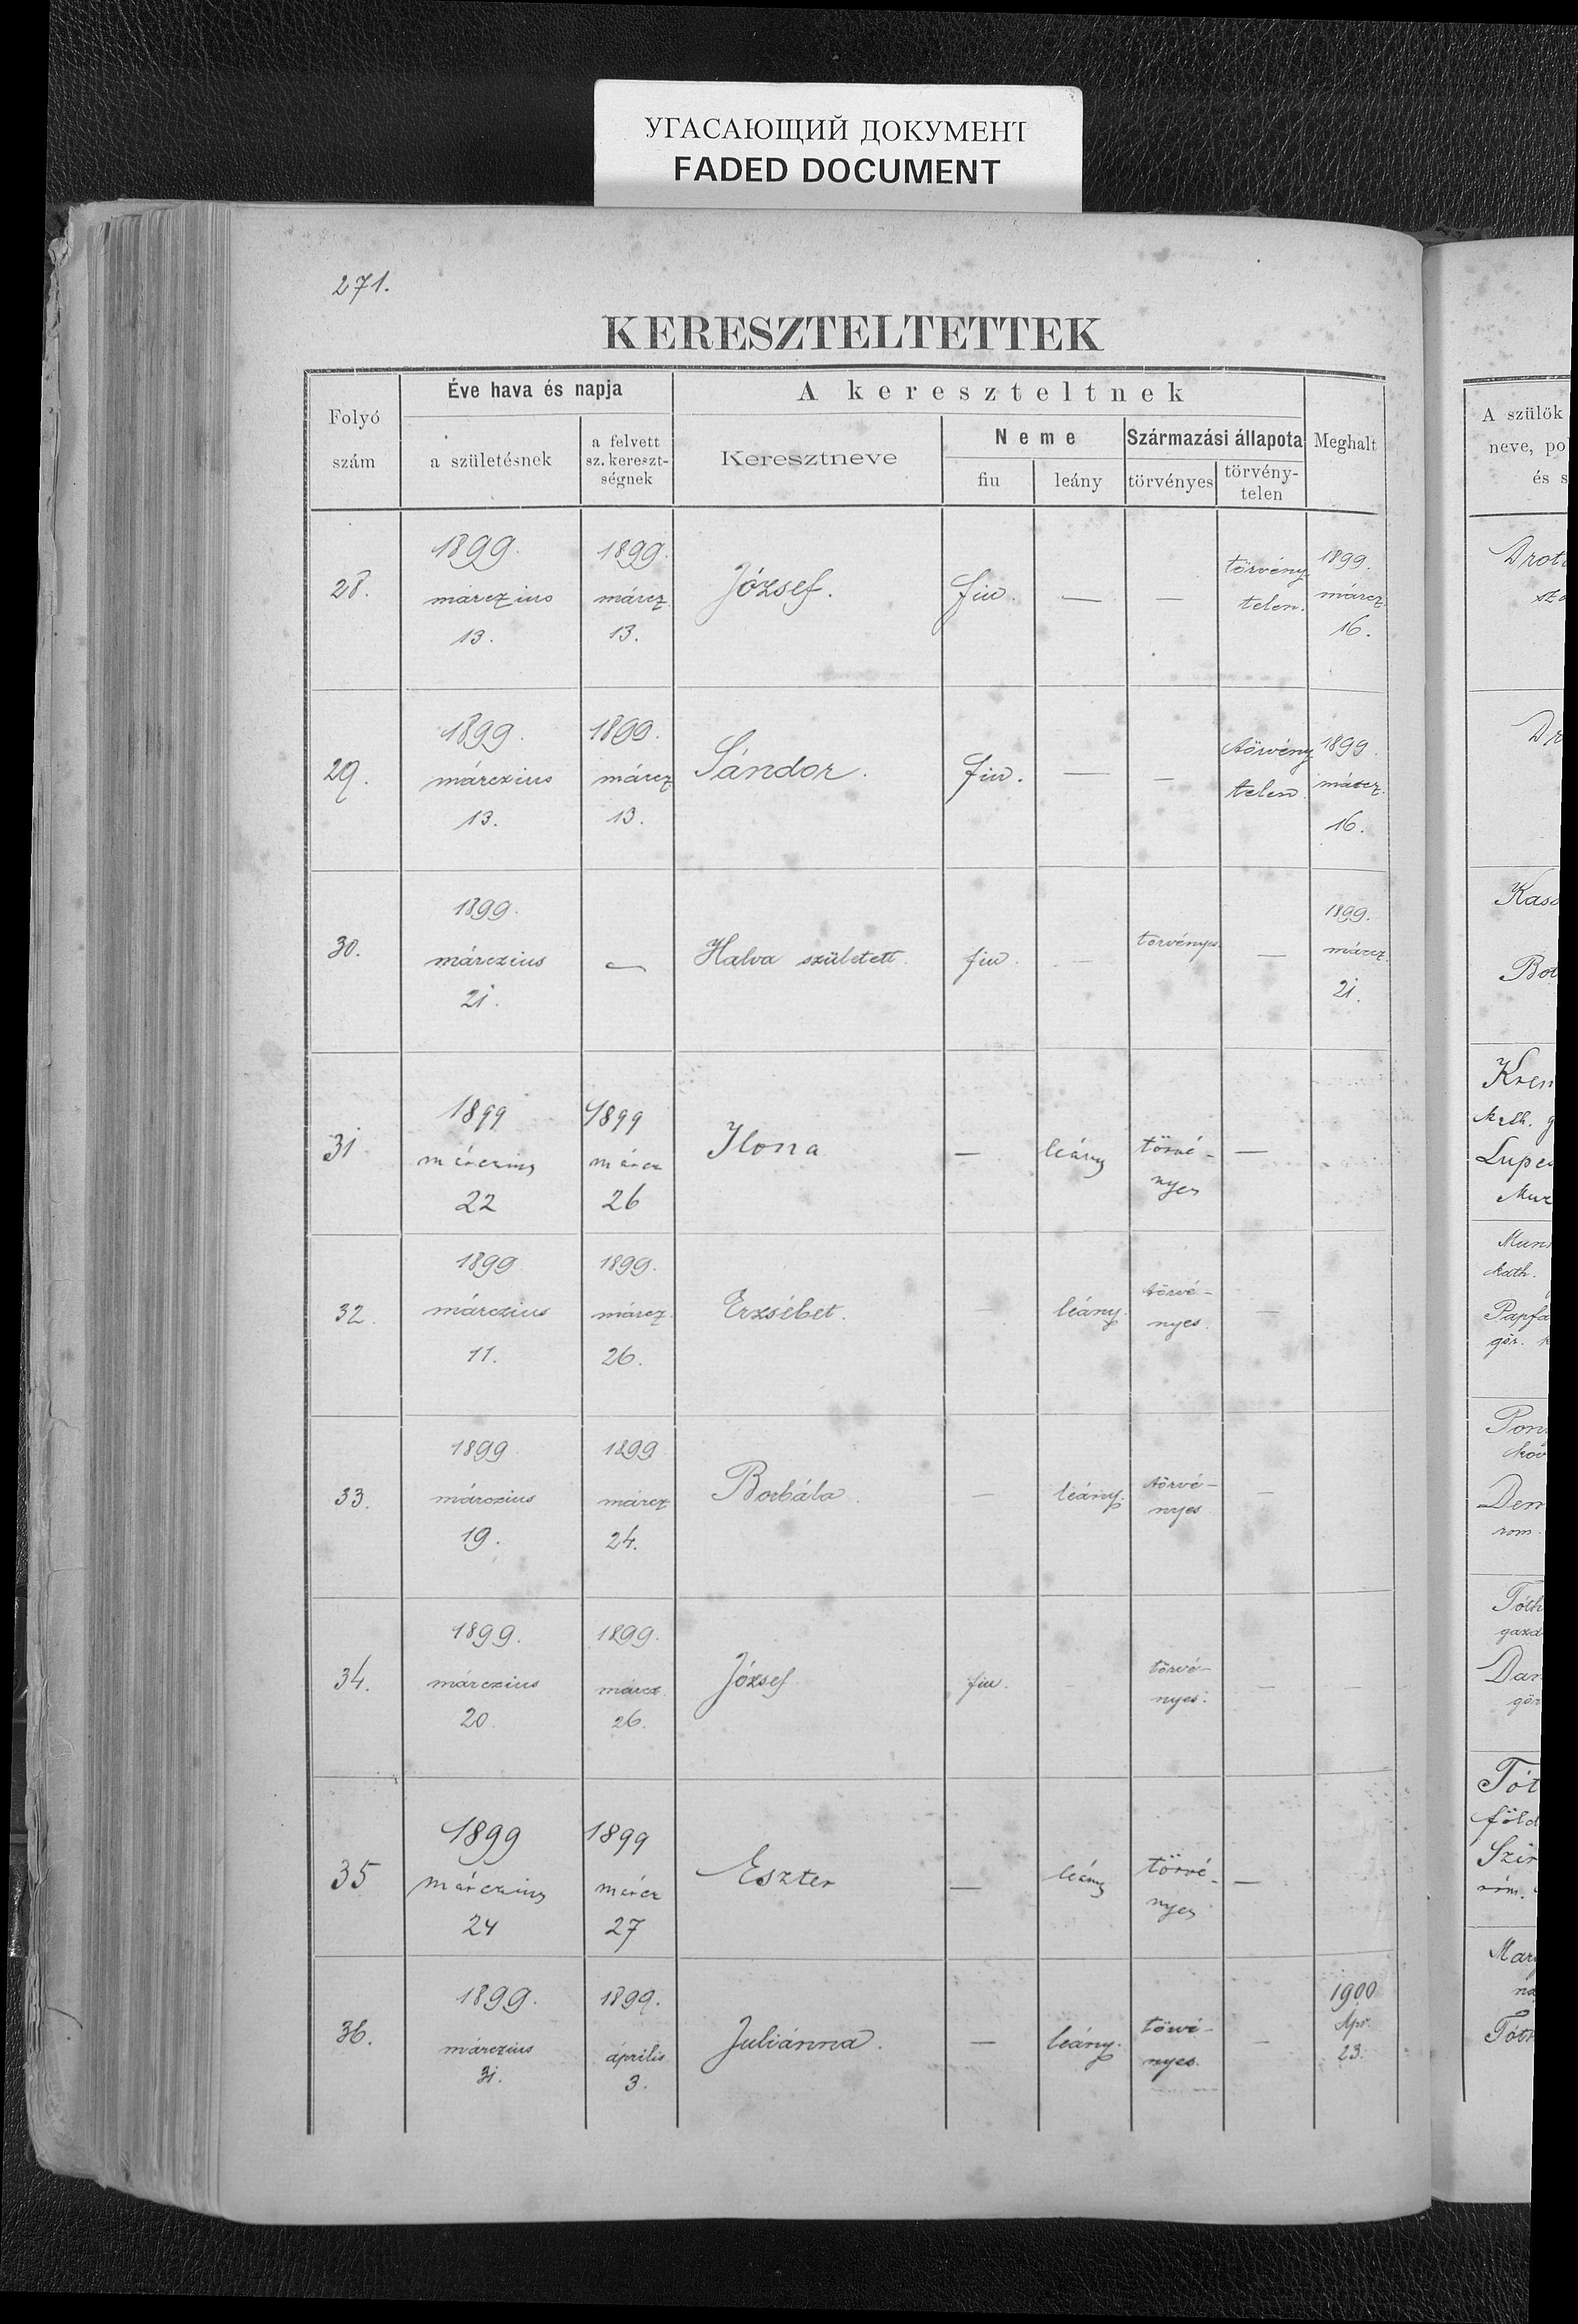 УГАСАЮЩИЙ ДОКУМЕНТ
FADED DOCUMENT
271.
KERESZTELTETTEK
Folyó szám
Éve hava és napja
a születésnek
a felvett sz. kereszt-ségnek
A kereszteltnek
Keresztneve
Neme
fiu
leány
Származási állapota
törvényes
törvény-telen
Meghalt
A szülők
neve, po
és s
28. 1899. márczius 13. 1899. márcz. 13. József. fiu. — — törvény telen. 1899. márcz. 16.
29. 1899. márczius 13. 1899. márcz 13. Sándor. fiu. — — törvény telen 1899. márcz. 16.
30. 1899. márczius 21. — Halva született. fiu. — törvényes. — 1899. márcz. 21.
31. 1899 márczius 22 1899 márcz 26 Ilona — leány törvé-nyes —
32. 1899 márczius 11. 1899. márcz. 26. Erzsébet. — leány. törvé-nyes. —
33. 1899 márczius 19. 1899 márcz 24. Borbála. — leány. törvé-nyes —
34. 1899. márczius 20. 1899. márcz. 26. József fiu. — törvé-nyes. — —
35 1899 márczius 24 1899 márcz 27 Eszter — leány törvé-nyes —
36. 1899. márczius 31. 1899. április 3. Juliánna. — leány. törvé-nyes. — 1900 Apr. 23.
Drot
Dr
Kas
Bot
Kren
kath. g
Lupe
Mun
kath.
Papfa
gör. k
Pon
Dem
rom.
Tóth
gazd
Dan
gör
Tót
föld
Szir
róm.
Mar
Tóth